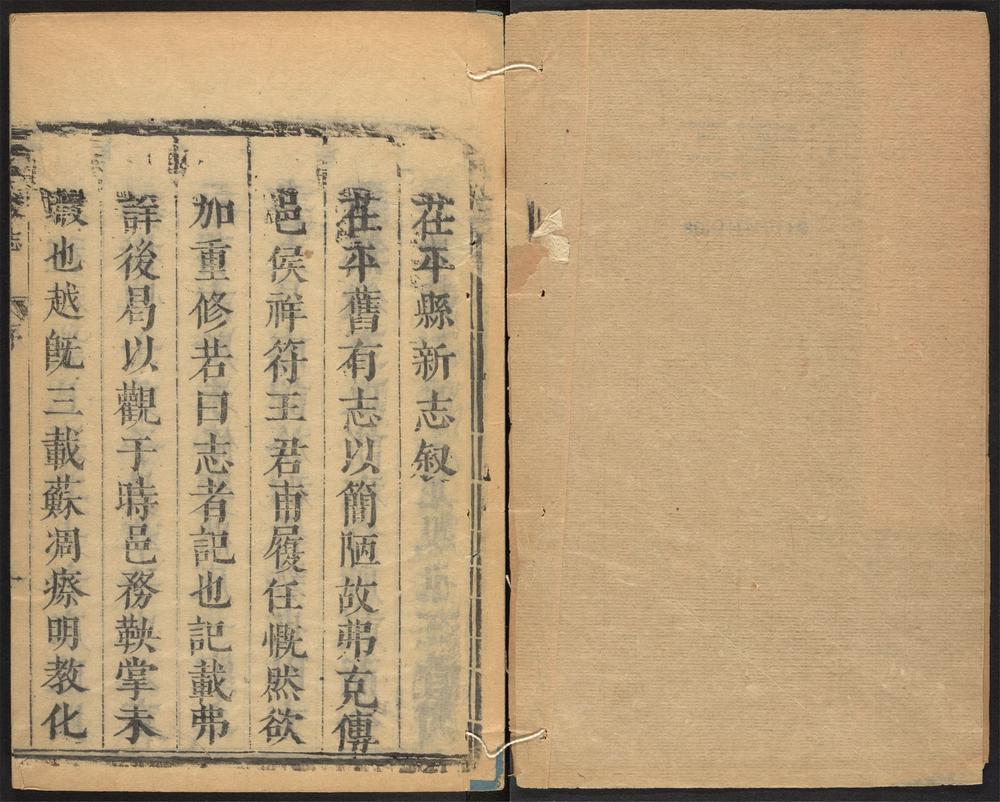 茌平縣新志叙
茌平舊有志以簡陋故弗克傳
邑侯祥符王君甫履任慨然欲
加重修若曰志者記也記載弗
詳後曷以觀于時邑務鞅掌未
暇也越旣三載蘇凋瘵明教化